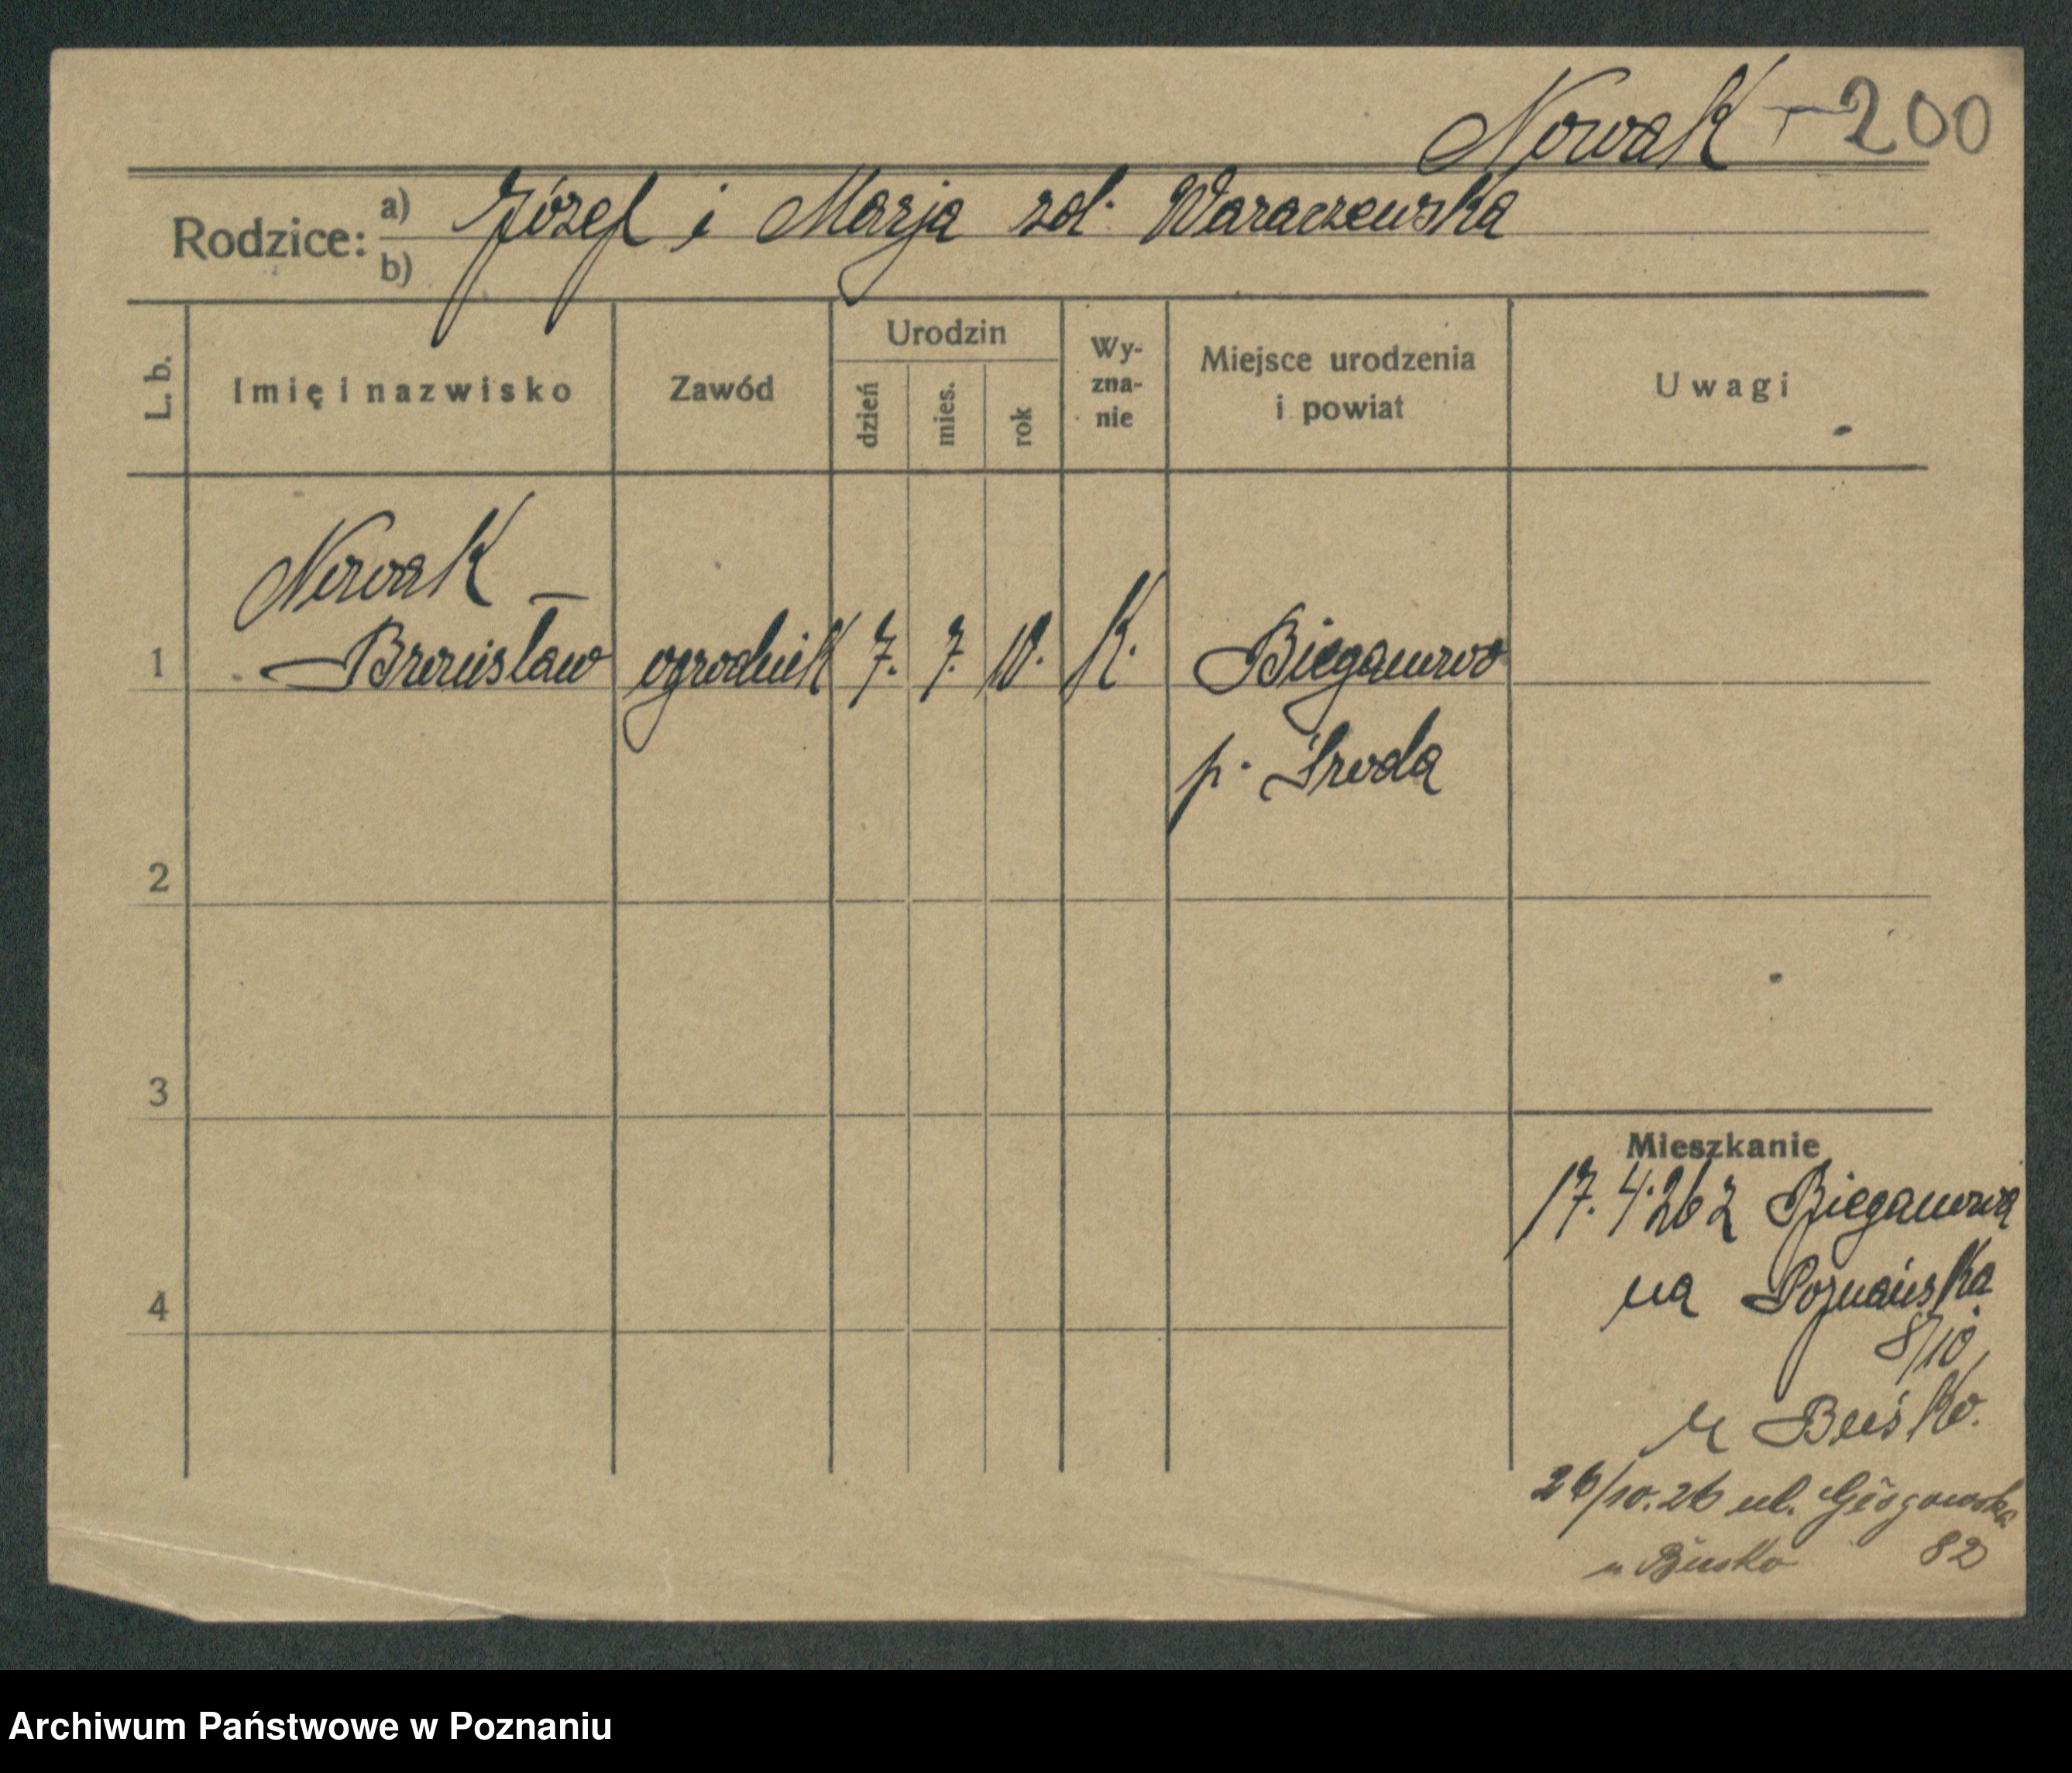 Nowak - 200
Rodzice: a) Józef i Marja zol. Waraczewska
b)
L. b. Imię i nazwisko Zawód Urodzin dzień mies. rok Wyznanie Miejsce urodzenia i powiat Uwagi
Nowak
1 Bronisław ogrodnik 7. 7. 10. K. Bieganowo
p. Środa
2
3
Mieszkanie
17. 4. 26 z Bieganowa
4 na Poznańska
8/10
u Buśko.
26/10. 26 ul. Głogowska
u Buśko 82
Archiwum Państwowe w Poznaniu